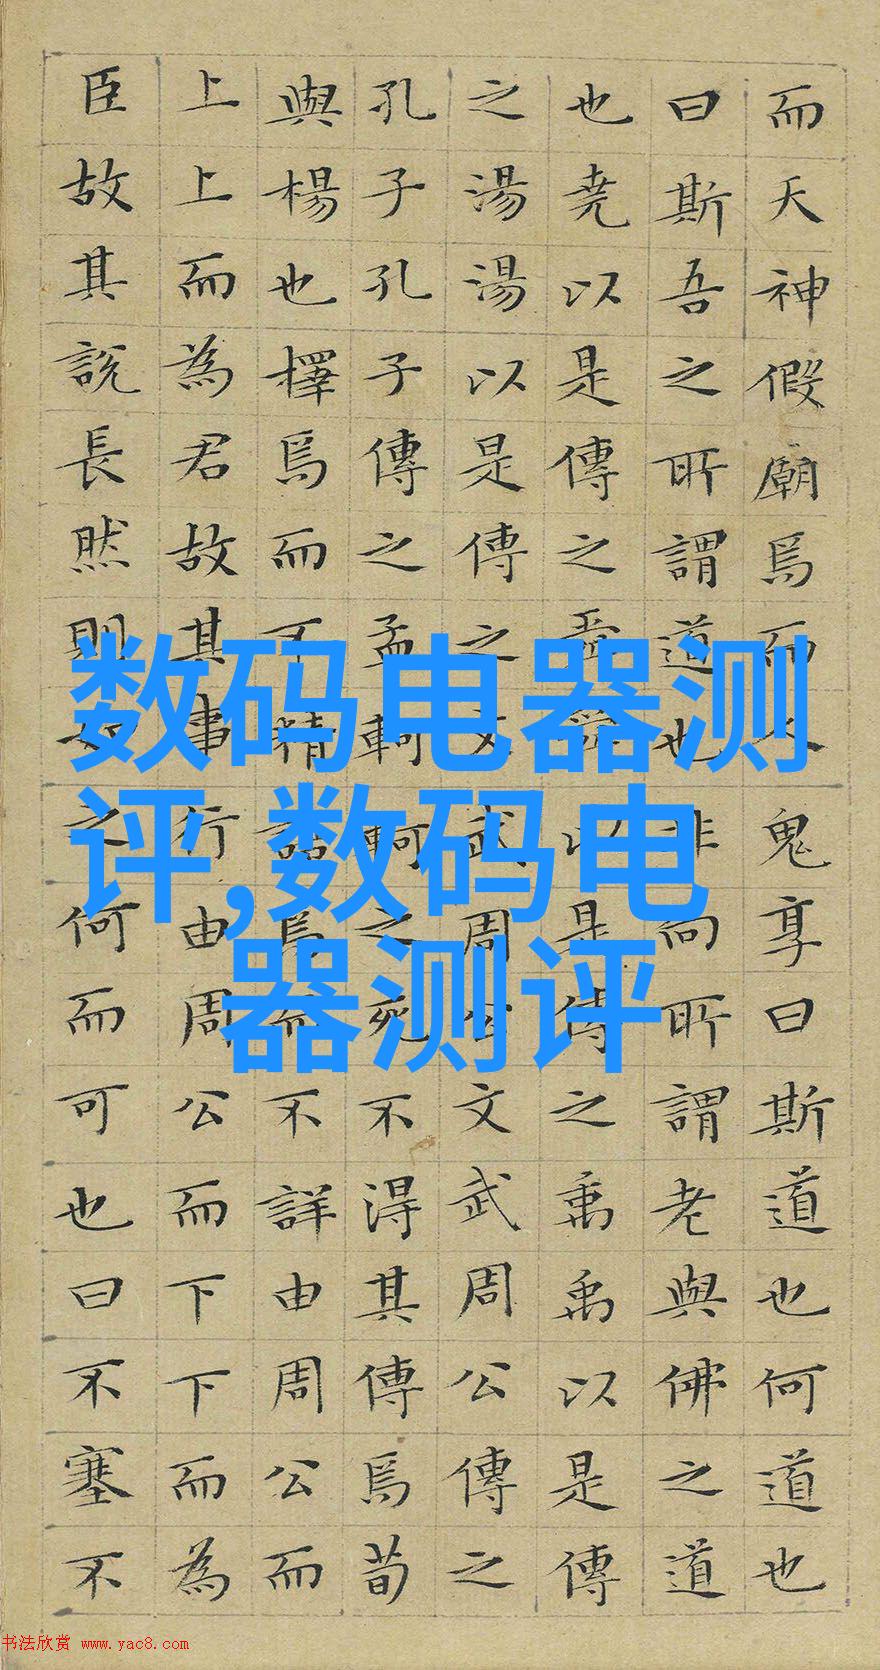 而天神假廟焉而人鬼享曰斯道也何道也
曰斯吾之所謂道也非向所謂老與佛之道
也堯以是傳之舜舜以是傳之禹禹以是傳
之湯湯以是傳之文武周公文武周公傳之
孔子孔子傳之孟軻軻之死不得其傳焉荀
與楊也擇焉而不精語焉而不詳由周公而
上上而為君故其事行由周公而下下而為
臣故其說長然則如之何而可也曰不塞不
数码电器测
评,数码电
器测评
书法欣赏 www.yac8.com